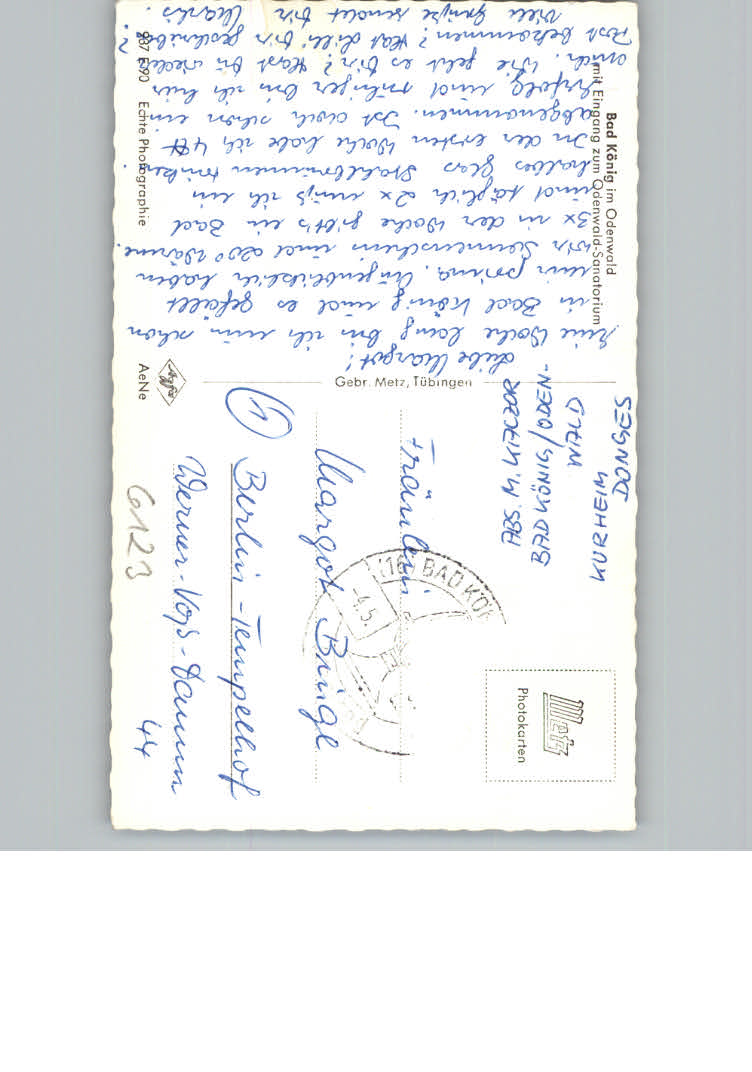 Bad König im Odenwald
mit Eingang zum Odenwald-Sanatorium
Liebe Margot!
Eine Woche lang bin ich nun schon
in Bad König und es gefällt
mir prima. Augenblicklich haben
wir Sonnenschein und 20° Wärme.
3x in der Woche gibt's ein Bad
und täglich 2x muß ich ein
halbes Glas Stahlbrunnen trinken.
In der ersten Woche habe ich 4 ℔
abgenommen. Ist doch schon ein
Erfolg und ruhiger bin ich hier
auch. Wie geht es Dir? Hast Du wieder
Post bekommen? Hat Dir geschrieben?
Viele Grüße sendet Dir
987 E/90 Echte Photographie
Gebr. Metz, Tübingen
Agfa
AeNe
ABS. M.
BAD KÖNIG/ODEN-
KURHEIM
Metz
Photokarten
(16) BAD KÖ
-4.5.
Fräulein
Margot Bingl
Berlin-Tempelhof
1
Werner-Voß-Damm
44
6123